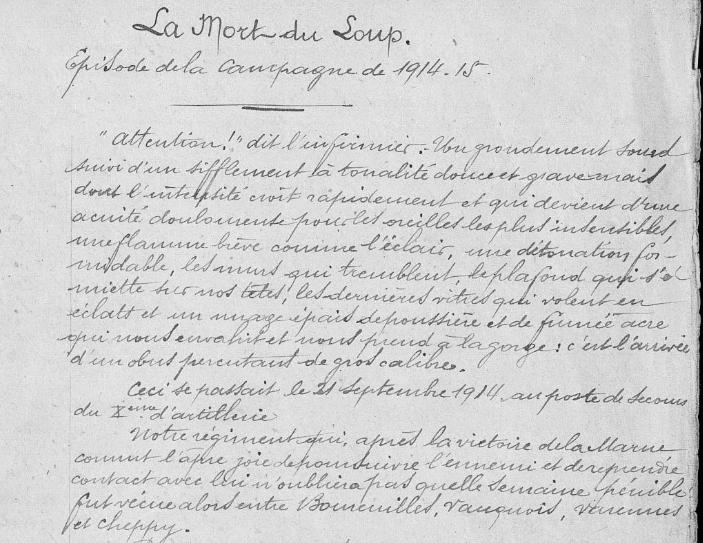 La Mort du Loup.
Episode de la Campagne de 1914.15.
"Attention!" dit l'infirmier. - Un grondement sourd
suivi d'un sifflement à tonalité douce et grave mais
dont l'intensité croit rapidement et qui devient d'une
acuité douloureuse pour les oreilles les plus insensibles,
une flamme brève comme l'éclair, une détonation for-
midable, les murs qui tremblent, le plafond qui s'é-
miette sur nos têtes, les dernières vitres qui volent en
éclats et un nuage épais de poussière et de fumée acre
qui nous envahit et nous prend à la gorge : c'est l'arrivée
d'un obus percutant de gros calibre.
Ceci se passait le 21 septembre 1914, au poste de secours
du Xème d'artillerie
Notre régiment qui, après la victoire de la Marne
connut l'âpre joie de poursuivre l'ennemi et de reprendre
contact avec lui n'oubliera pas quelle semaine pénible
fut vécue alors entre Boureuilles, Vauquois, Varennes
et Cheppy.